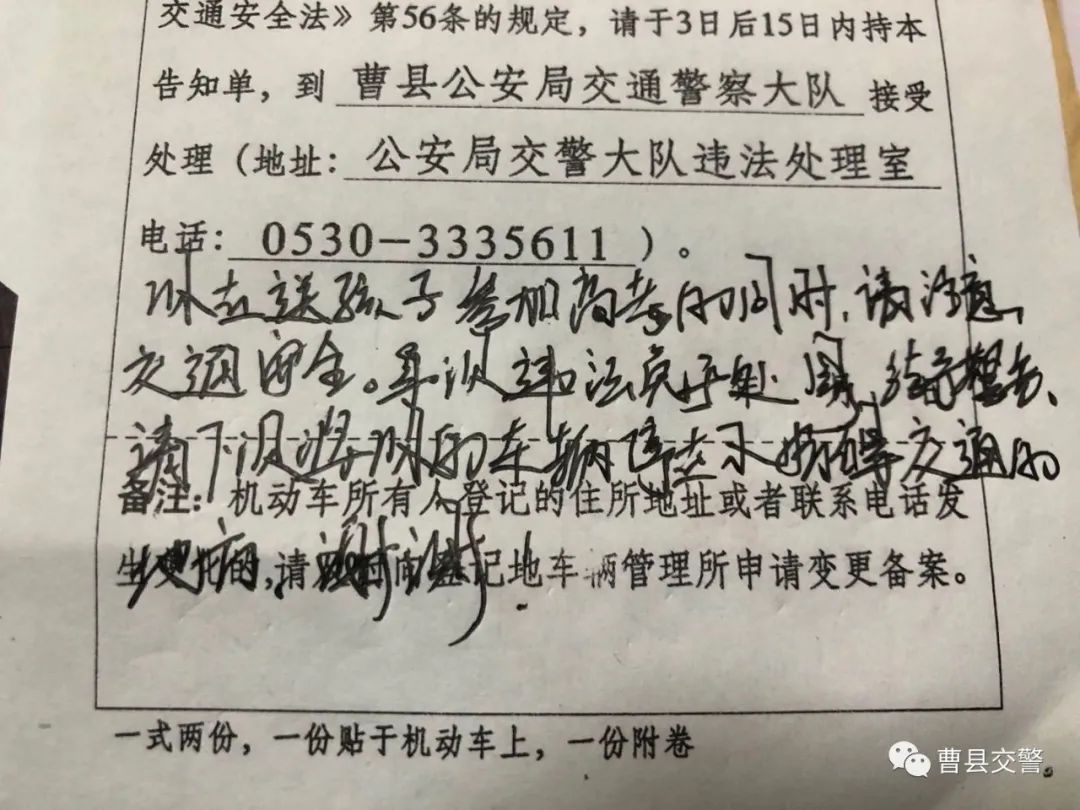 交通安全法》第56条的规定，请于3日后15日内持本
告知单，到 曹县公安局交通警察大队 接受
处理（地址：公安局交警大队违法处理室
电话：0530-3335611）。
你在送孩子参加高考的同时，请注意
交通安全。虽以违法免于处罚，给予警告、
请下次将你的车辆停在不妨碍交通的
备注：机动车所有人登记的住所地址或者联系电话发
地方，谢谢！
生变化的，请及时向登记地车辆管理所申请变更备案。
一式两份，一份贴于机动车上，一份附卷
曹县交警